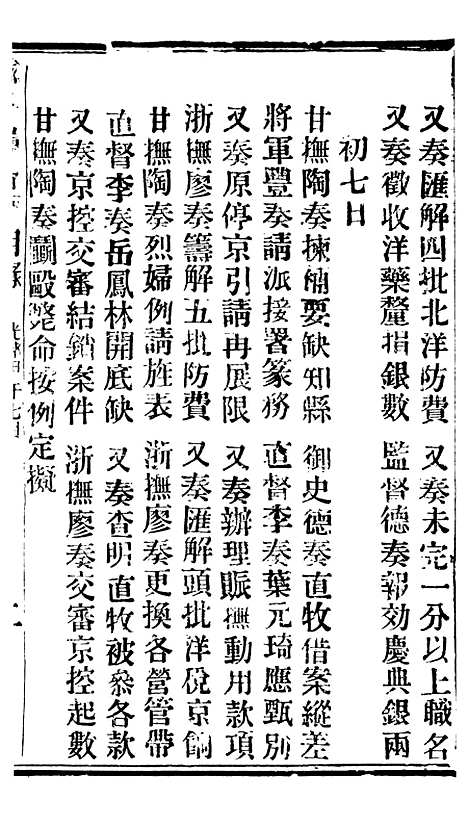 又奏匯解四批北洋防費　又奏未完一分以上職名
又奏徵收洋藥釐捐銀數　監督德奏報効慶典銀兩
初七日
甘撫陶奏揀補要缺知縣　御史德奏直牧借案縱差
將軍豐奏請派接署篆務　直督李奏葉元琦應甄別
又奏原停京引請再展限　又奏辦理賑撫動用款項
浙撫廖奏籌解五批防費　又奏匯解頭批洋稅京餉
甘撫陶奏烈婦例請旌表　浙撫廖奏更換各營管帶
直督李奏岳鳳林開底缺　又奏查明直牧被參各款
又奏京控交審結銷案件　浙撫廖奏交審京控起數
甘撫陶奏鬬毆斃命按例定擬
目錄　光緒甲午七月